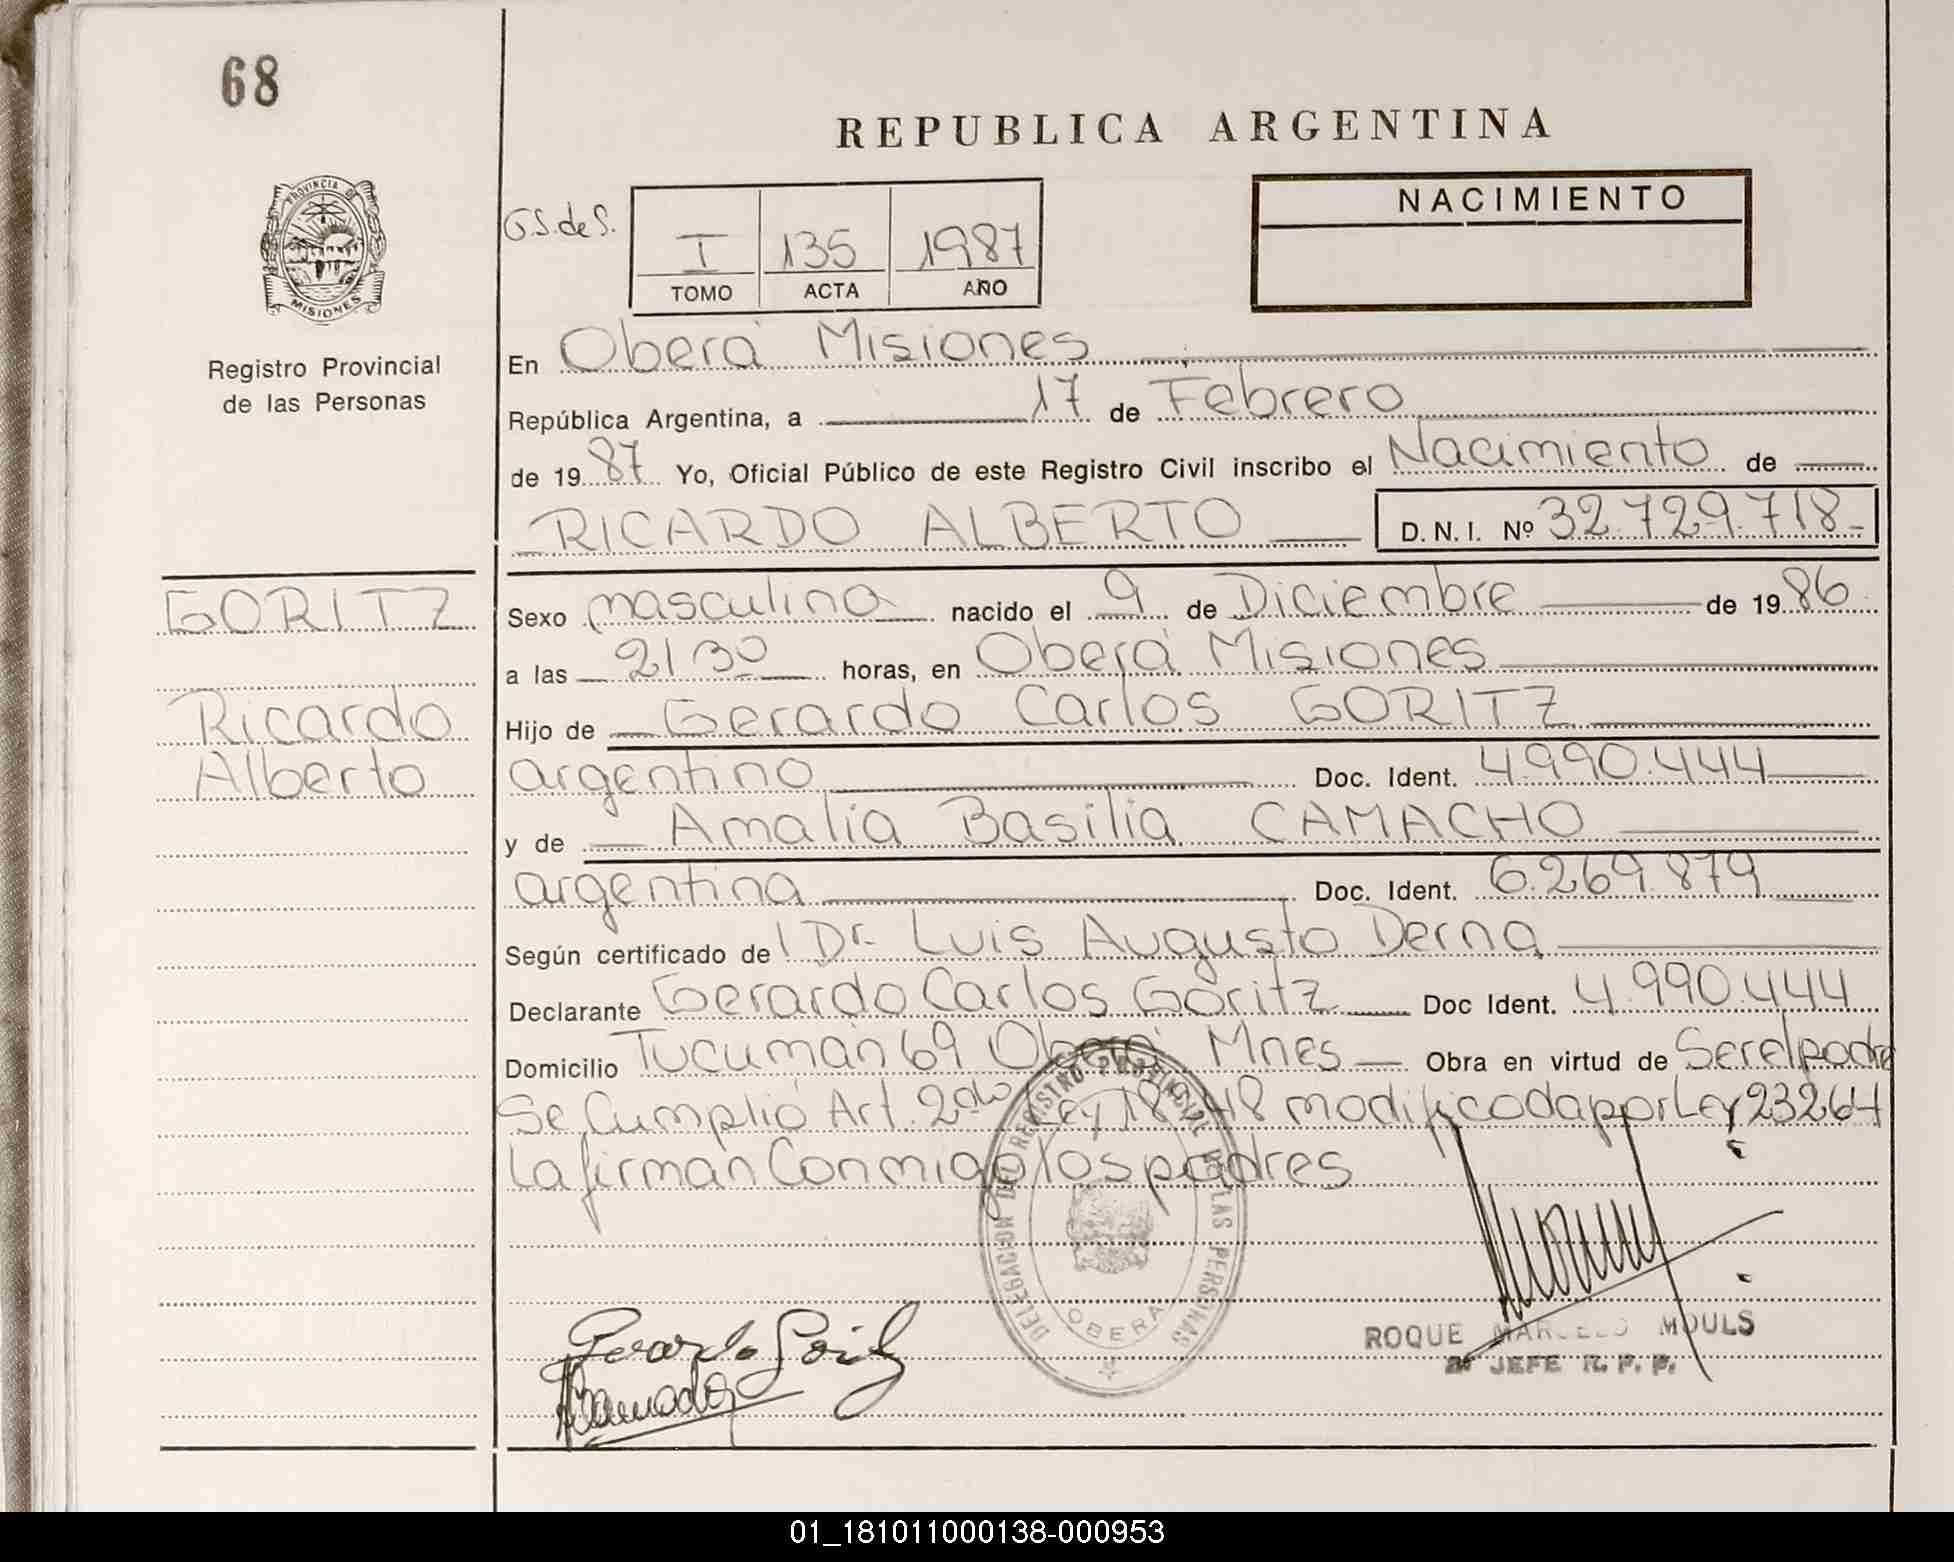 68
REPUBLICA ARGENTINA
PROVINCIA DE
MISIONES
Registro Provincial
de las Personas
NACIMIENTO
G.S.de S.
I 135 1987
TOMO ACTA AÑO
En Oberá Misiones
República Argentina, a 17 de Febrero
de 19 87 Yo, Oficial Público de este Registro Civil inscribo el Nacimiento de
RICARDO ALBERTO D.N.I. Nº 32.729.718.-
GORITZ
Ricardo
Alberto
Sexo masculino nacido el 9 de Diciembre de 1986
a las 21 30 horas, en Oberá Misiones
Hijo de Gerardo Carlos GORITZ
argentino Doc. Ident. 4.990.444
y de Amalia Basilia CAMACHO
argentina Doc. Ident. 6.269.879
Según certificado de l Dr. Luis Augusto Derna
Declarante Gerardo Carlos Goritz Doc Ident. 4.990.444
Domicilio Tucumán 69 Oberá Mnes Obra en virtud de Ser el padre
Se Cumplió Art. 2do Ley 18248 modificoda por Ley 23264
La firman Conmigo los padres
DELEGACION DEL REGISTRO PROVINCIAL DE LAS PERSONAS
OBERA
Gerardo Goritz
ROQUE MARCELO MOULS
JEFE R. P. P.
01_181011000138-000953